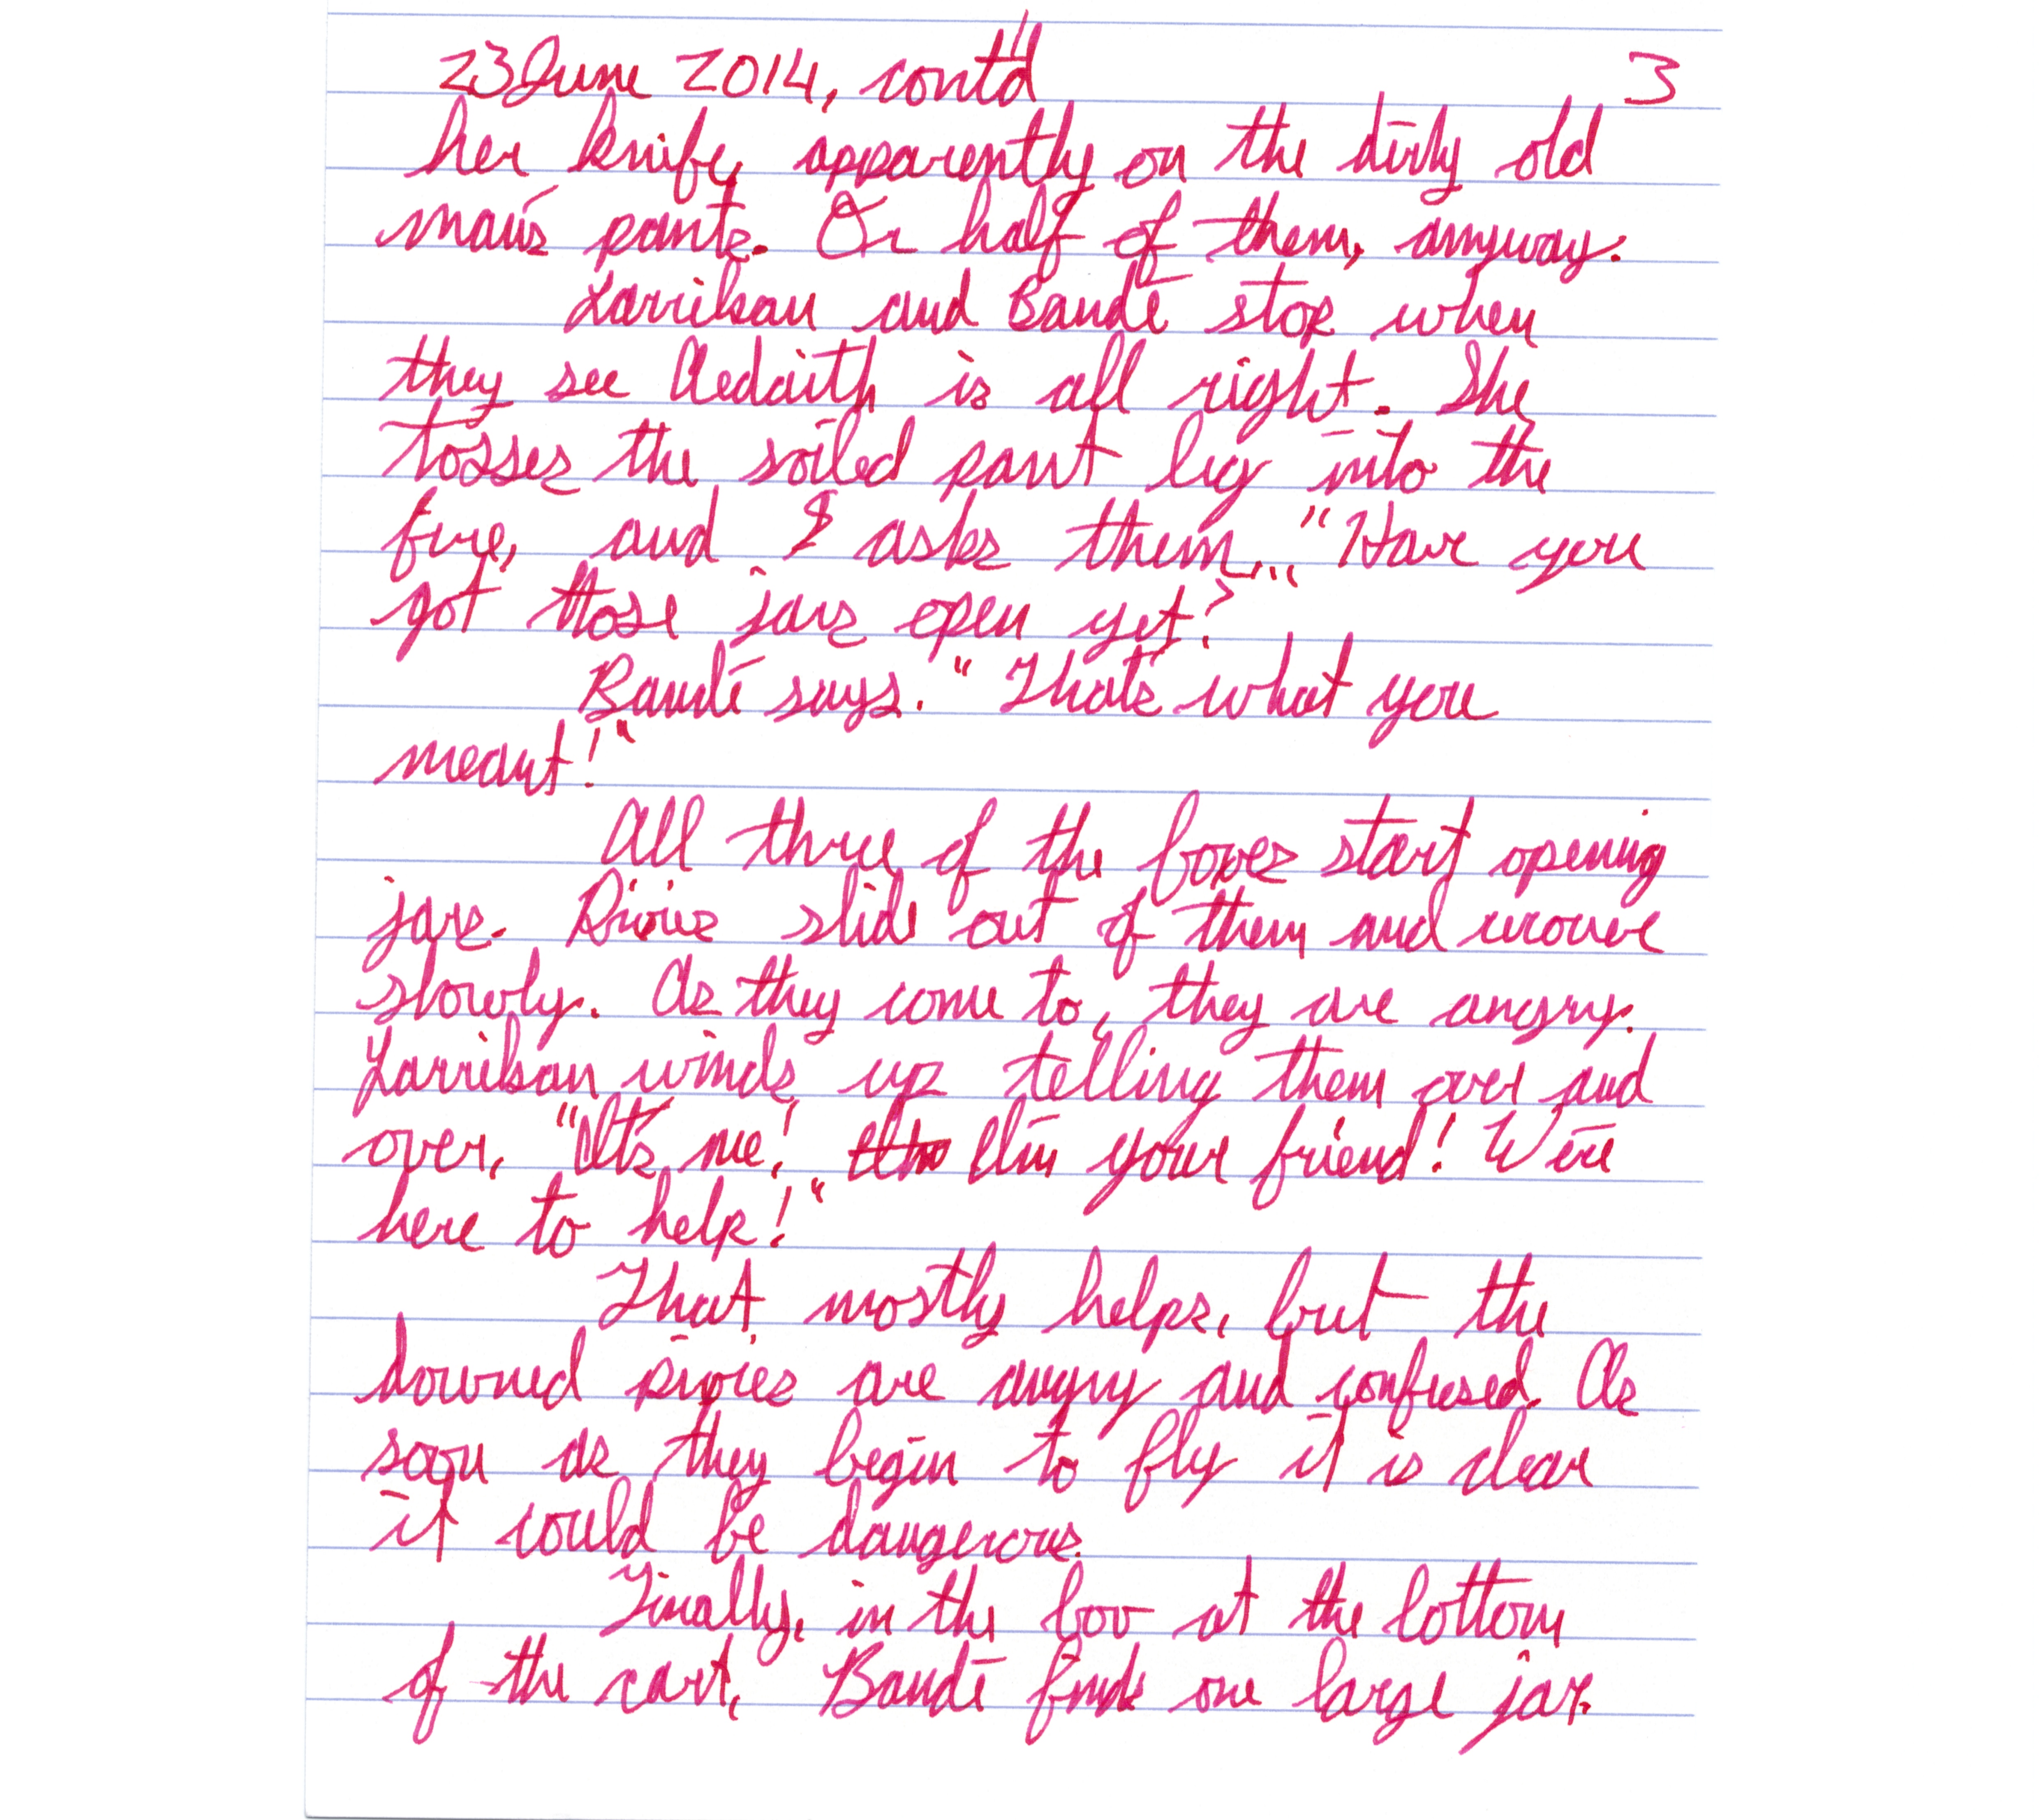 23 June 2014, cont'd 3
her knife, apparently on the dirty old
man's pants. Or half of them, anyway.
Larrikan and Bandé stop when
they see Aedaith is all right. She
tosses the soiled pant leg into the
fire, and asks them... "Have you
got those jars open yet?
Bandé says. "That's what you
meant!"
All three of the foxes start opening
jars. Pixies slide out of them and recover
slowly. As they come to, they are angry.
Larrikan winds up telling them over and
over, "It's me! I'm your friend! We're
here to help!"
That mostly helps, but the
downed pixies are angry and confused. As
soon as they begin to fly it is clear
it could be dangerous.
Finally, in the box at the bottom
of the cart, Bandé finds one large jar.